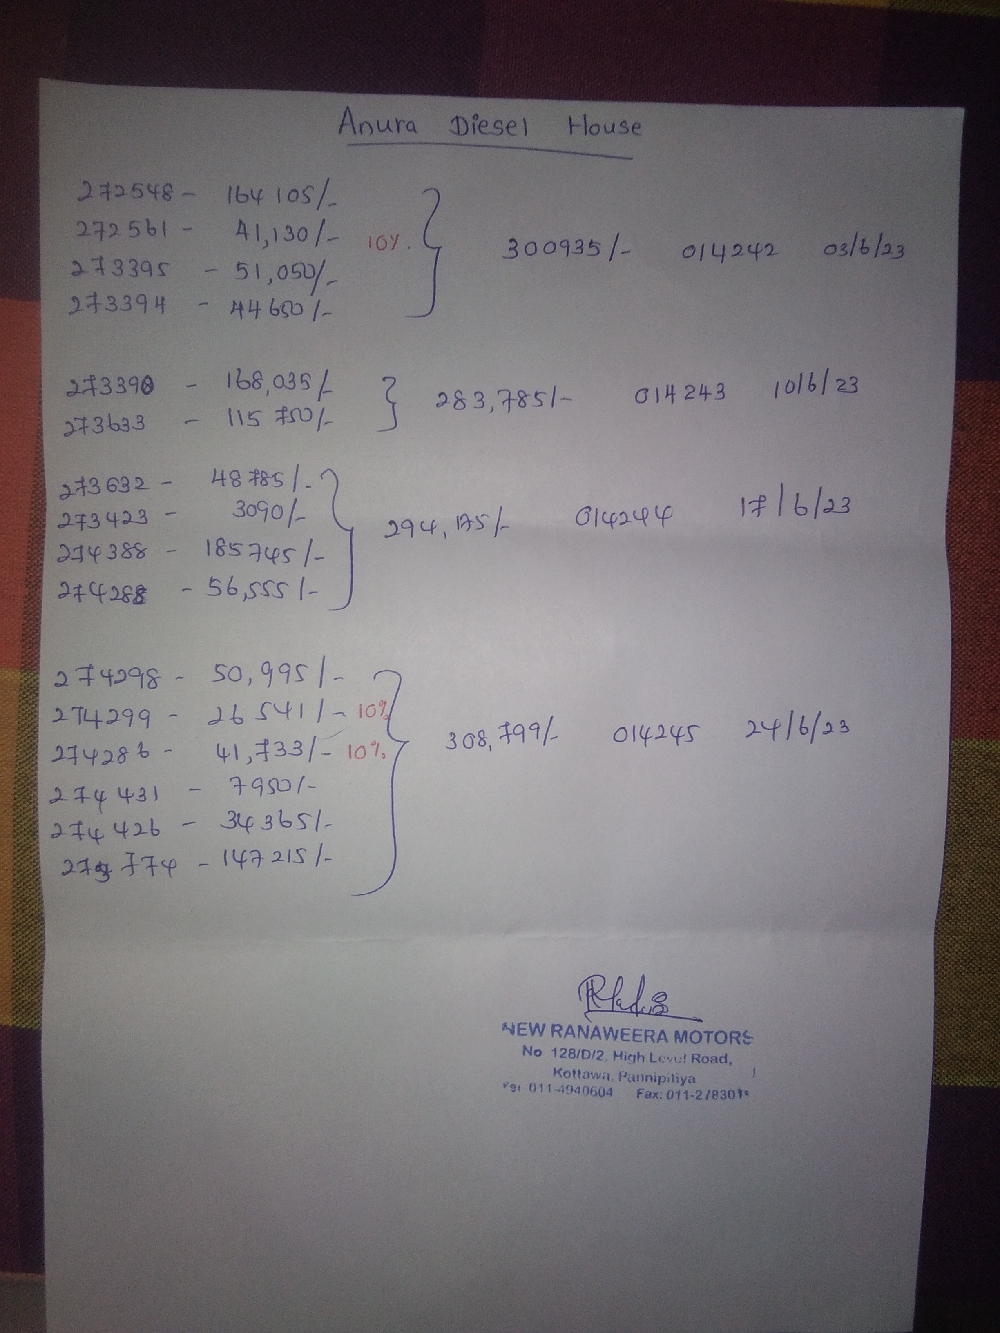 Anura Diesel House
272548 - 164 105/-
272561 - 41,130/- 10%.
273395 - 51,050/-
273394 - 44650/-
300935/- 014242 03/6/23
273390 - 168,035/-
273633 - 115 750/-
283,785/- 014243 10/6/23
273632 - 48785/-
273423 - 3090/-
274388 - 185745/-
274288 - 56,555/-
294,175/- 014244 17/6/23
274298 - 50,995/-
274299 - 26541/- 10%
274286 - 41,733/- 10%.
274431 - 7950/-
274426 - 34365/-
273774 - 147215/-
308,799/- 014245 24/6/23
NEW RANAWEERA MOTORS
No 128/D/2, High Level Road,
Kottawa, Pannipitiya
011-4940604 Fax: 011-278301